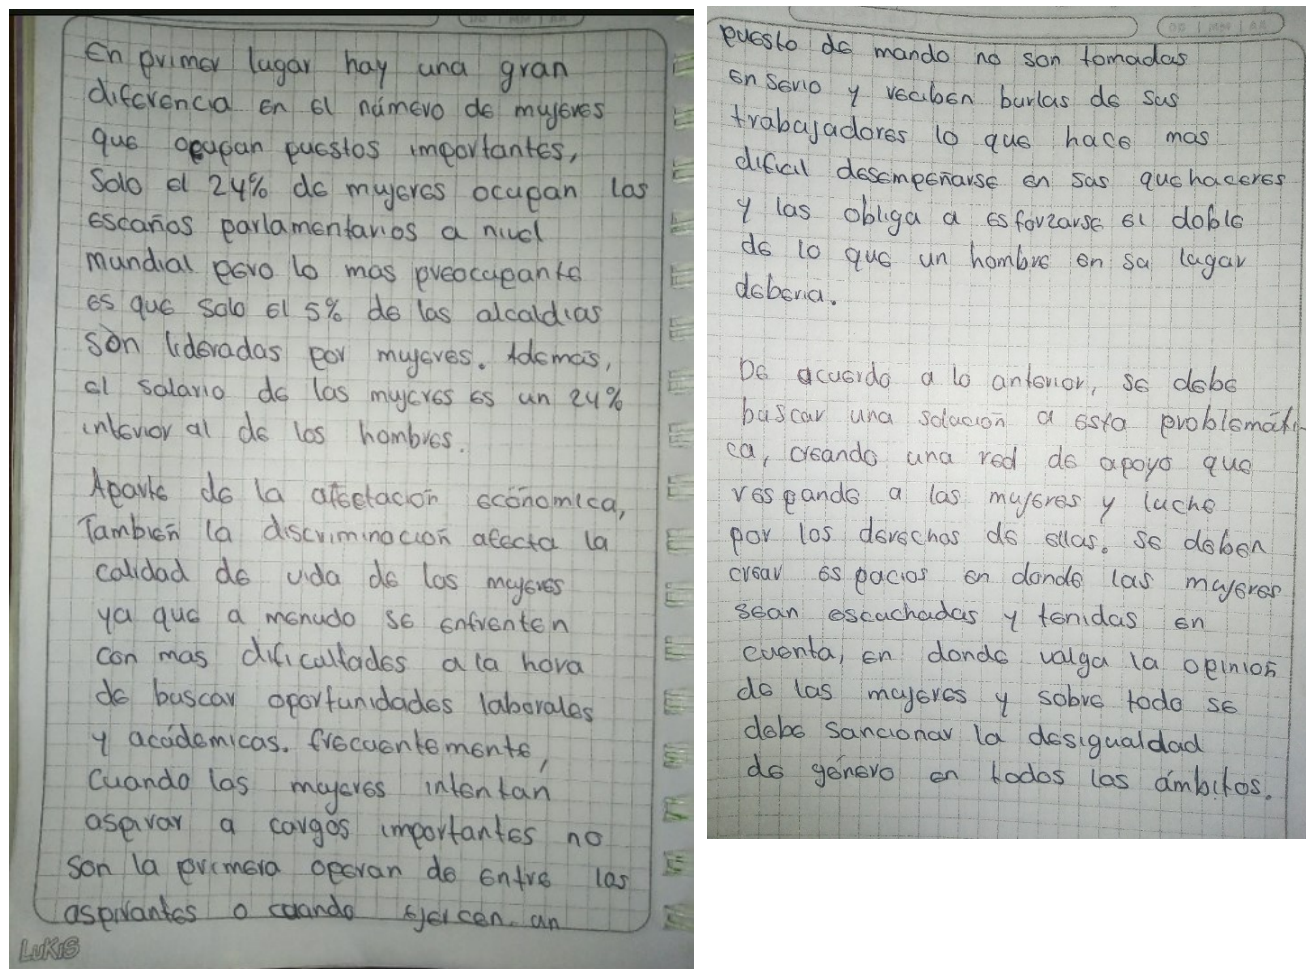 En primer lugar hay una gran
diferencia en el número de mujeres
que ocupan puestos importantes,
Solo el 24% de mujeres ocupan los
escaños parlamentarios a nivel
mundial pero lo mas preocupante
es que solo el 5% de las alcaldias
son lideradas por mujeres. Ademas,
el salario de las mujeres es un 24%
inferior al de los hombres.
Aparte de la afectación económica,
También la discriminación afecta la
calidad de vida de las mujeres
ya que a menudo se enfrenten
con mas dificultades a la hora
de buscar oportunidades laborales
y académicas. frecuentemente,
cuando las mujeres intentan
aspirar a cargos importantes no
son la primera de entre las
aspirantes o cuando ejercen un
LUKIS
puesto de mando no son tomadas
en serio y reciben burlas de sus
trabajadores lo que hace mas
dificil desempeñarse en sus quehaceres
y las obliga a esforzarse el doble
de lo que un hombre en su lugar
deberia.
De acuerdo a lo anterior, se debe
buscar una solución a esta problemáti-
ca, creando una red de apoyo que
responde a las mujeres y luche
por los derechos de ellas. se deben
crear espacios en donde las mujeres
sean escuchadas y tenidas en
cuenta, en donde valga la opinión
de las mujeres y sobre todo se
debe sancionar la desigualdad
de género en todos los ámbitos.